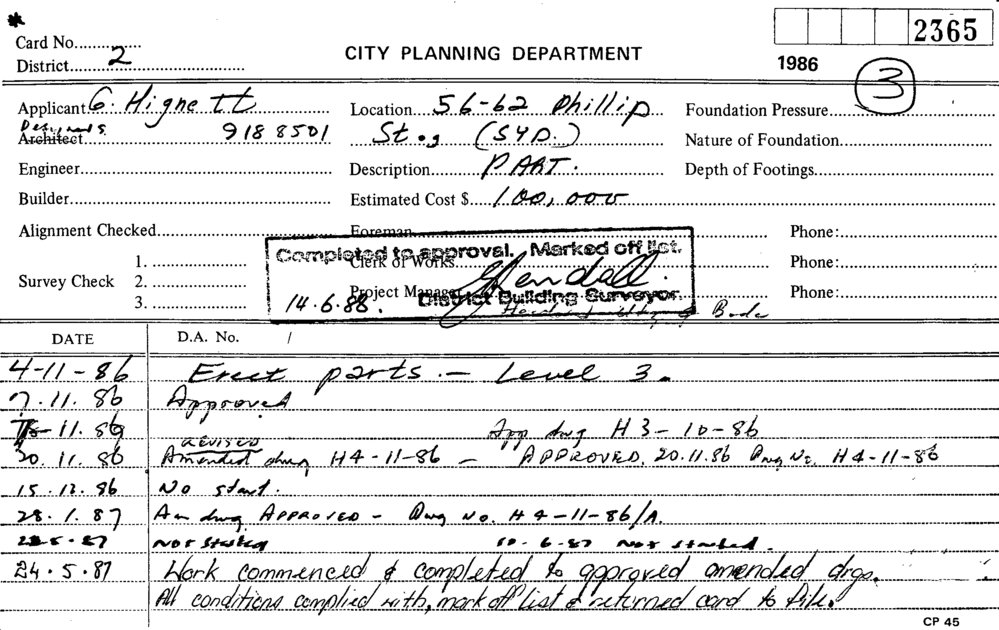 *
Card No............... 2365
District 2 CITY PLANNING DEPARTMENT 1986
3
Applicant G. Hignett Location 56-62 Phillip Foundation Pressure
Designers
Architect 918 8501 St., (SYD.) Nature of Foundation
Engineer Description PART. Depth of Footings
Builder Estimated Cost $ 100,000
Alignment Checked Foreman Phone:
Completed to approval. Marked off list.
Survey Check 1. Clerk of Works Phone:
2. Kendall.
3. Project Manager Phone:
14.6.88. District Building Surveyor.
DATE D.A. No. /
4-11-86 Erect parts. - Level 3.
7.11.86 Approved
11.86 App dwg H3-10-86
REVISED
20.11.86 Amended dwg H4-11-86 - APPROVED. 20.11.86 Dwg No. H4-11-86
15.12.86 No start.
28.1.87 Am dwg APPROVED - Dwg No. H4-11-86/A.
5.87 Not started 10.6.87 Not started.
24.5.87 Work commenced & completed to approved amended drgs.
All conditions complied with, mark off list & returned card to file.
CP 45